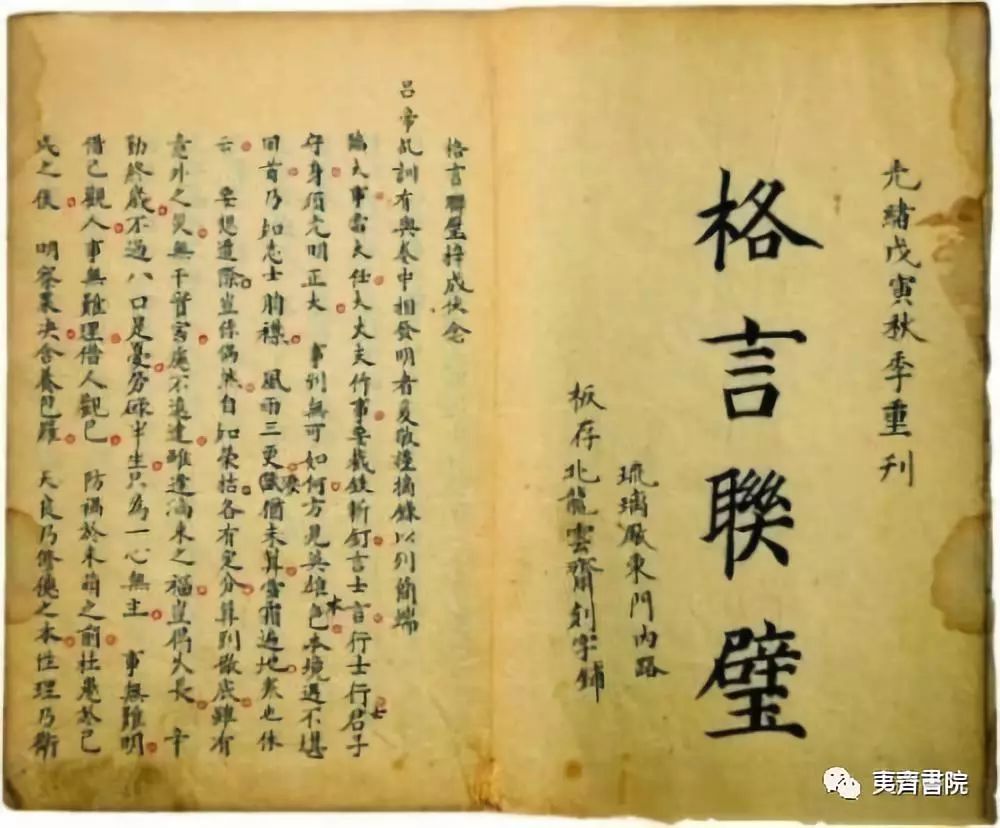 光緒戊寅秋季重刊
格言聯璧
琉璃厰東門內路
板存北龍雲齋刻字鋪
格言聯璧梓成伏念
呂帝乩訓有與卷中相發明者爰敬謹摘錄以列簡端
臨大事當大任大丈夫作事要截鉄斬釘言士言行士行君子
守身須光明正大 事到無可如何方見英雄本色境遇不堪
回首乃知志士胸襟 風雨三更 猶未算雪霜遍地寒也休
云 要想遭際豈係偶然自知榮枯各有定分算到徹底雖有
意外之災無干晉害處不遠達雖逢滿來之福豈偶久長 辛
勤終歲不過八口是憂勞碌半生只為一心無主 事無難明
借己觀人事無難理借人觀己 防禍於未萌之前杜患於已
成之後 明察果決含養包羅 天良乃修德之本性理乃衛
夷齊書院